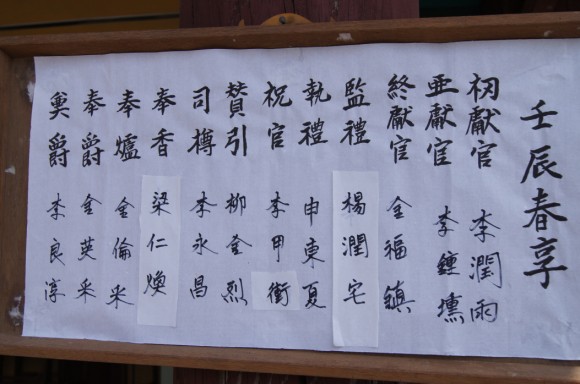 壬辰春享
初獻官 李潤雨
亞獻官 李鍾壎
終獻官 金福鎭
監禮 楊潤宅
執禮 申東夏
祝官 李甲衝
贊引 柳金烈
司樽 李永昌
奉香 梁仁煥
奉爐 金倫采
奉爵 金英采
奠爵 李良淳